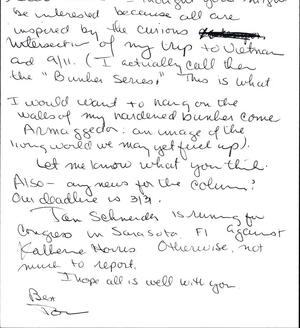 thought you might
be interested because all are
inspired by the curious
intersection of my trip to Vietnam
and 9/11. (I actually call them
the "Bunker Series." This is what
I would want to hang on the
walls of my hardened bunker come
Armaggedon: an image of the
living world we may get fuel up).
Let me know what you think.
Also - any news for the column?
Our deadline is 3/3.
Jan Schneider is running for
Congress in Sarasota Fl against
Katherine Harris Otherwise, not
much to report.
I hope all is well with you
Best